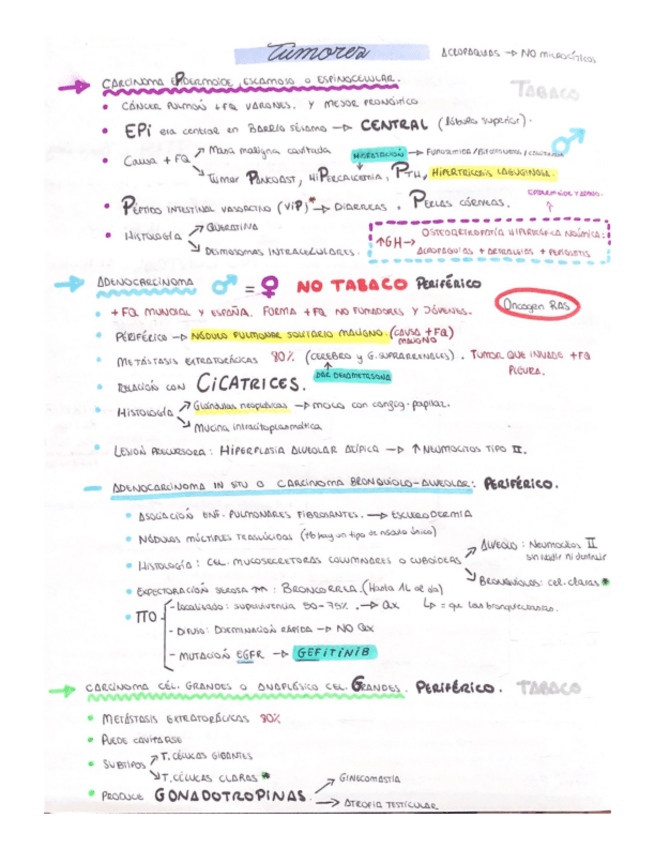 Tumores
ACROPAQUIAS → NO MICROCÍTICOS
CARCINOMA EPIDERMOIDE, ESCAMOSO O ESPINOCELULAR.
TABACO
• CÁNCER PULMÓN + FQ VARONES. Y MEJOR PRONÓSTICO
• EPI era central en BARRIO SÉSAMO → CENTRAL (lóbulo superior).
• CAUSA + FQ → Masa maligna cavitada
HIDRATACIÓN →
→ TUMOR PANCOAST, HIPERCALCEMIA, PTH, HIPERTRICOSIS LANUGINOSA.
• PÉPTIDO INTESTINAL VASOACTIVO (VIP)* → DIARREAS. PERLAS CÓRNEAS.
EPIDERMOIDE Y ADENO.
• HISTOLOGÍA → QUERATINA
→ DESMOSOMAS INTRACELULARES.
OSTEOARTROPATÍA HIPERTRÓFICA NEÚMICA:
↑GH → ACROPAQUIAS + ARTRALGIAS + PERIOSTITIS
ADENOCARCINOMA ♂ = ♀ NO TABACO PERIFÉRICO
Oncogen RAS
• + FQ MUNDIAL Y ESPAÑA. FORMA + FQ NO FUMADORES Y JÓVENES.
• PERIFÉRICO → NÓDULO PULMONAR SOLITARIO MALIGNO. (CAUSA + FQ)
MALIGNO
• METÁSTASIS EXTRATORÁCICAS 80% (CEREBRO Y G. SUPRARRENALES). TUMOR QUE INVADE + FQ
DAR DEXAMETASONA
PLEURA.
• RELACIÓN CON CICATRICES.
• HISTOLOGÍA → Glándulas neoplásicas → moco con config. papilar.
→ Mucina intracitoplasmática.
• LESIÓN PRECURSORA: HIPERPLASIA ALVEOLAR ATÍPICA → ↑ NEUMOCITOS TIPO II.
— ADENOCARCINOMA IN SITU O CARCINOMA BRONQUIOLO-ALVEOLAR: PERIFÉRICO.
• ASOCIACIÓN ENF. PULMONARES FIBROSANTES. → ESCLERODERMIA
• NÓDULOS MÚLTIPLES TRASLÚCIDOS (Tb hay un tipo de nódulo único)
• HISTOLOGÍA: CEL. MUCOSECRETORAS COLUMNARES O CUBOIDEAS → ALVEOLO: NEUMOCITOS II
sin invadir ni destruir
→ BRONQUIOLOS: cel. claras *
• EXPECTORACIÓN SEROSA ↑↑: BRONCORREA. (Hasta 1L al día)
• TTO - Localizado: supervivencia 50-75%. → QX ↳ = que las bronquiectasias.
- DIFUSO: DISEMINACIÓN RÁPIDA → NO QX
- MUTACIÓN EGFR → GEFITINIB
CARCINOMA CÉL. GRANDES O ANAPLÁSICO CEL. GRANDES. PERIFÉRICO. TABACO
• METÁSTASIS EXTRATORÁCICAS 80%
• PUEDE CAVITARSE
• SUBTIPOS → T. CÉLULAS GIGANTES
→ T. CÉLULAS CLARAS *
• PRODUCE GONADOTROPINAS → GINECOMASTIA
→ ATROFIA TESTICULAR